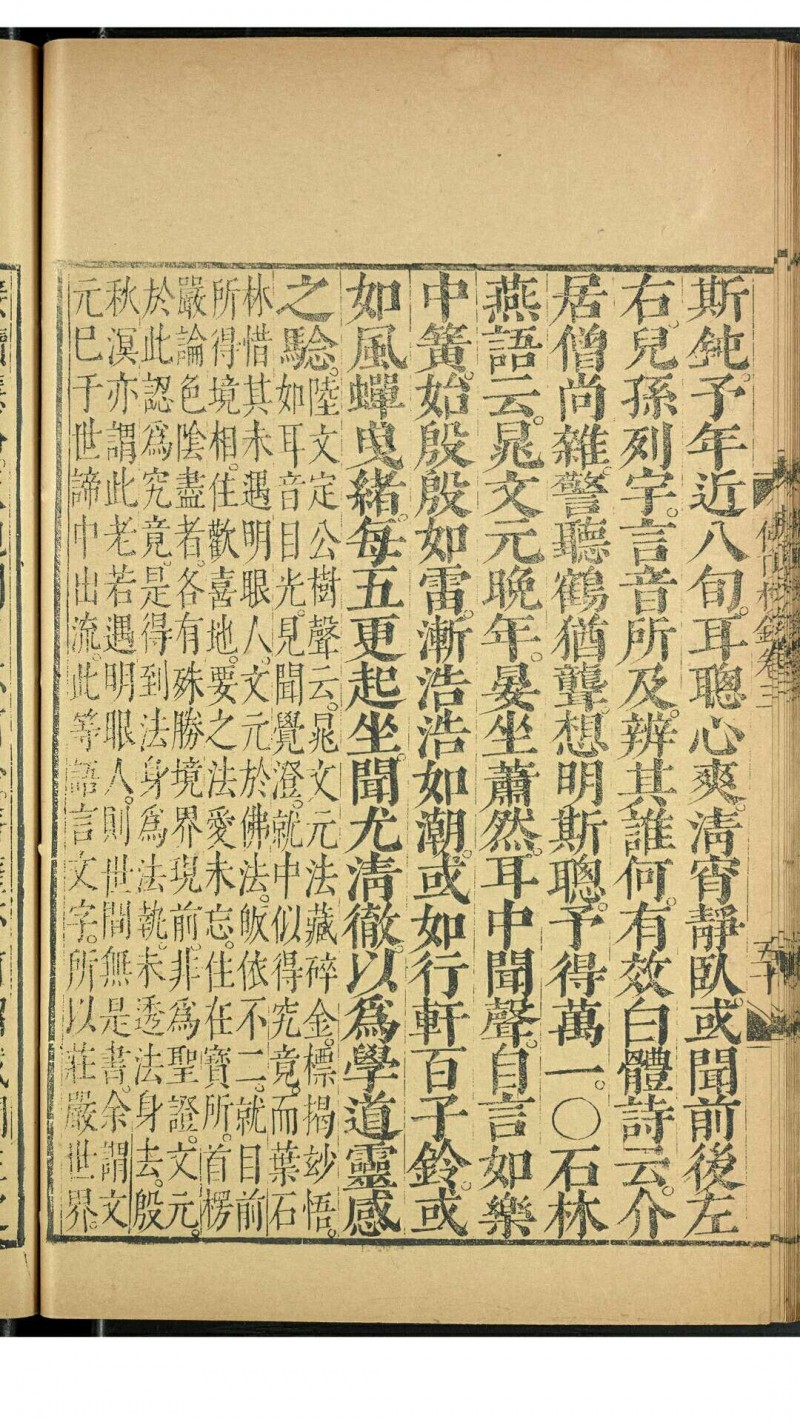 斯鈍。予年近八旬。耳聰心爽。清宵靜臥。或聞前後左
右。兒孫列宇。言音所及。辨其誰何。有效白體詩云。介
居僧尚雜。警聽鶴猶聾。想明斯聰。予得萬一。○石林
燕語云。晁文元晚年。晏坐蕭然。耳中聞聲。自言如樂
中簧。始殷殷如雷。漸浩浩如潮。或如行軒百子鈴。或
如風蟬曳緒。每五更起坐。聞尤清徹。以為學道靈感
之驗。
陸文定公樹聲云。晁文元法藏碎金。標揭妙悟。
如耳音目光。見聞覺澄。就中似得究竟。而葉石
林惜其未遇明眼人。文元於佛法。皈依不二。就目前
所得境相。住歡喜地。要之法愛未忘。住在寶所。首楞
嚴論色陰盡者。各有殊勝境界現前。非為聖證。文元
於此認為究竟。是得到法身為法執。未透法身去。殷
秋溟亦謂此老若遇明眼人。則世間無是書。余謂文
元巳于世諦中出流。此等語言文字。所以莊嚴世界。
卷三
五十